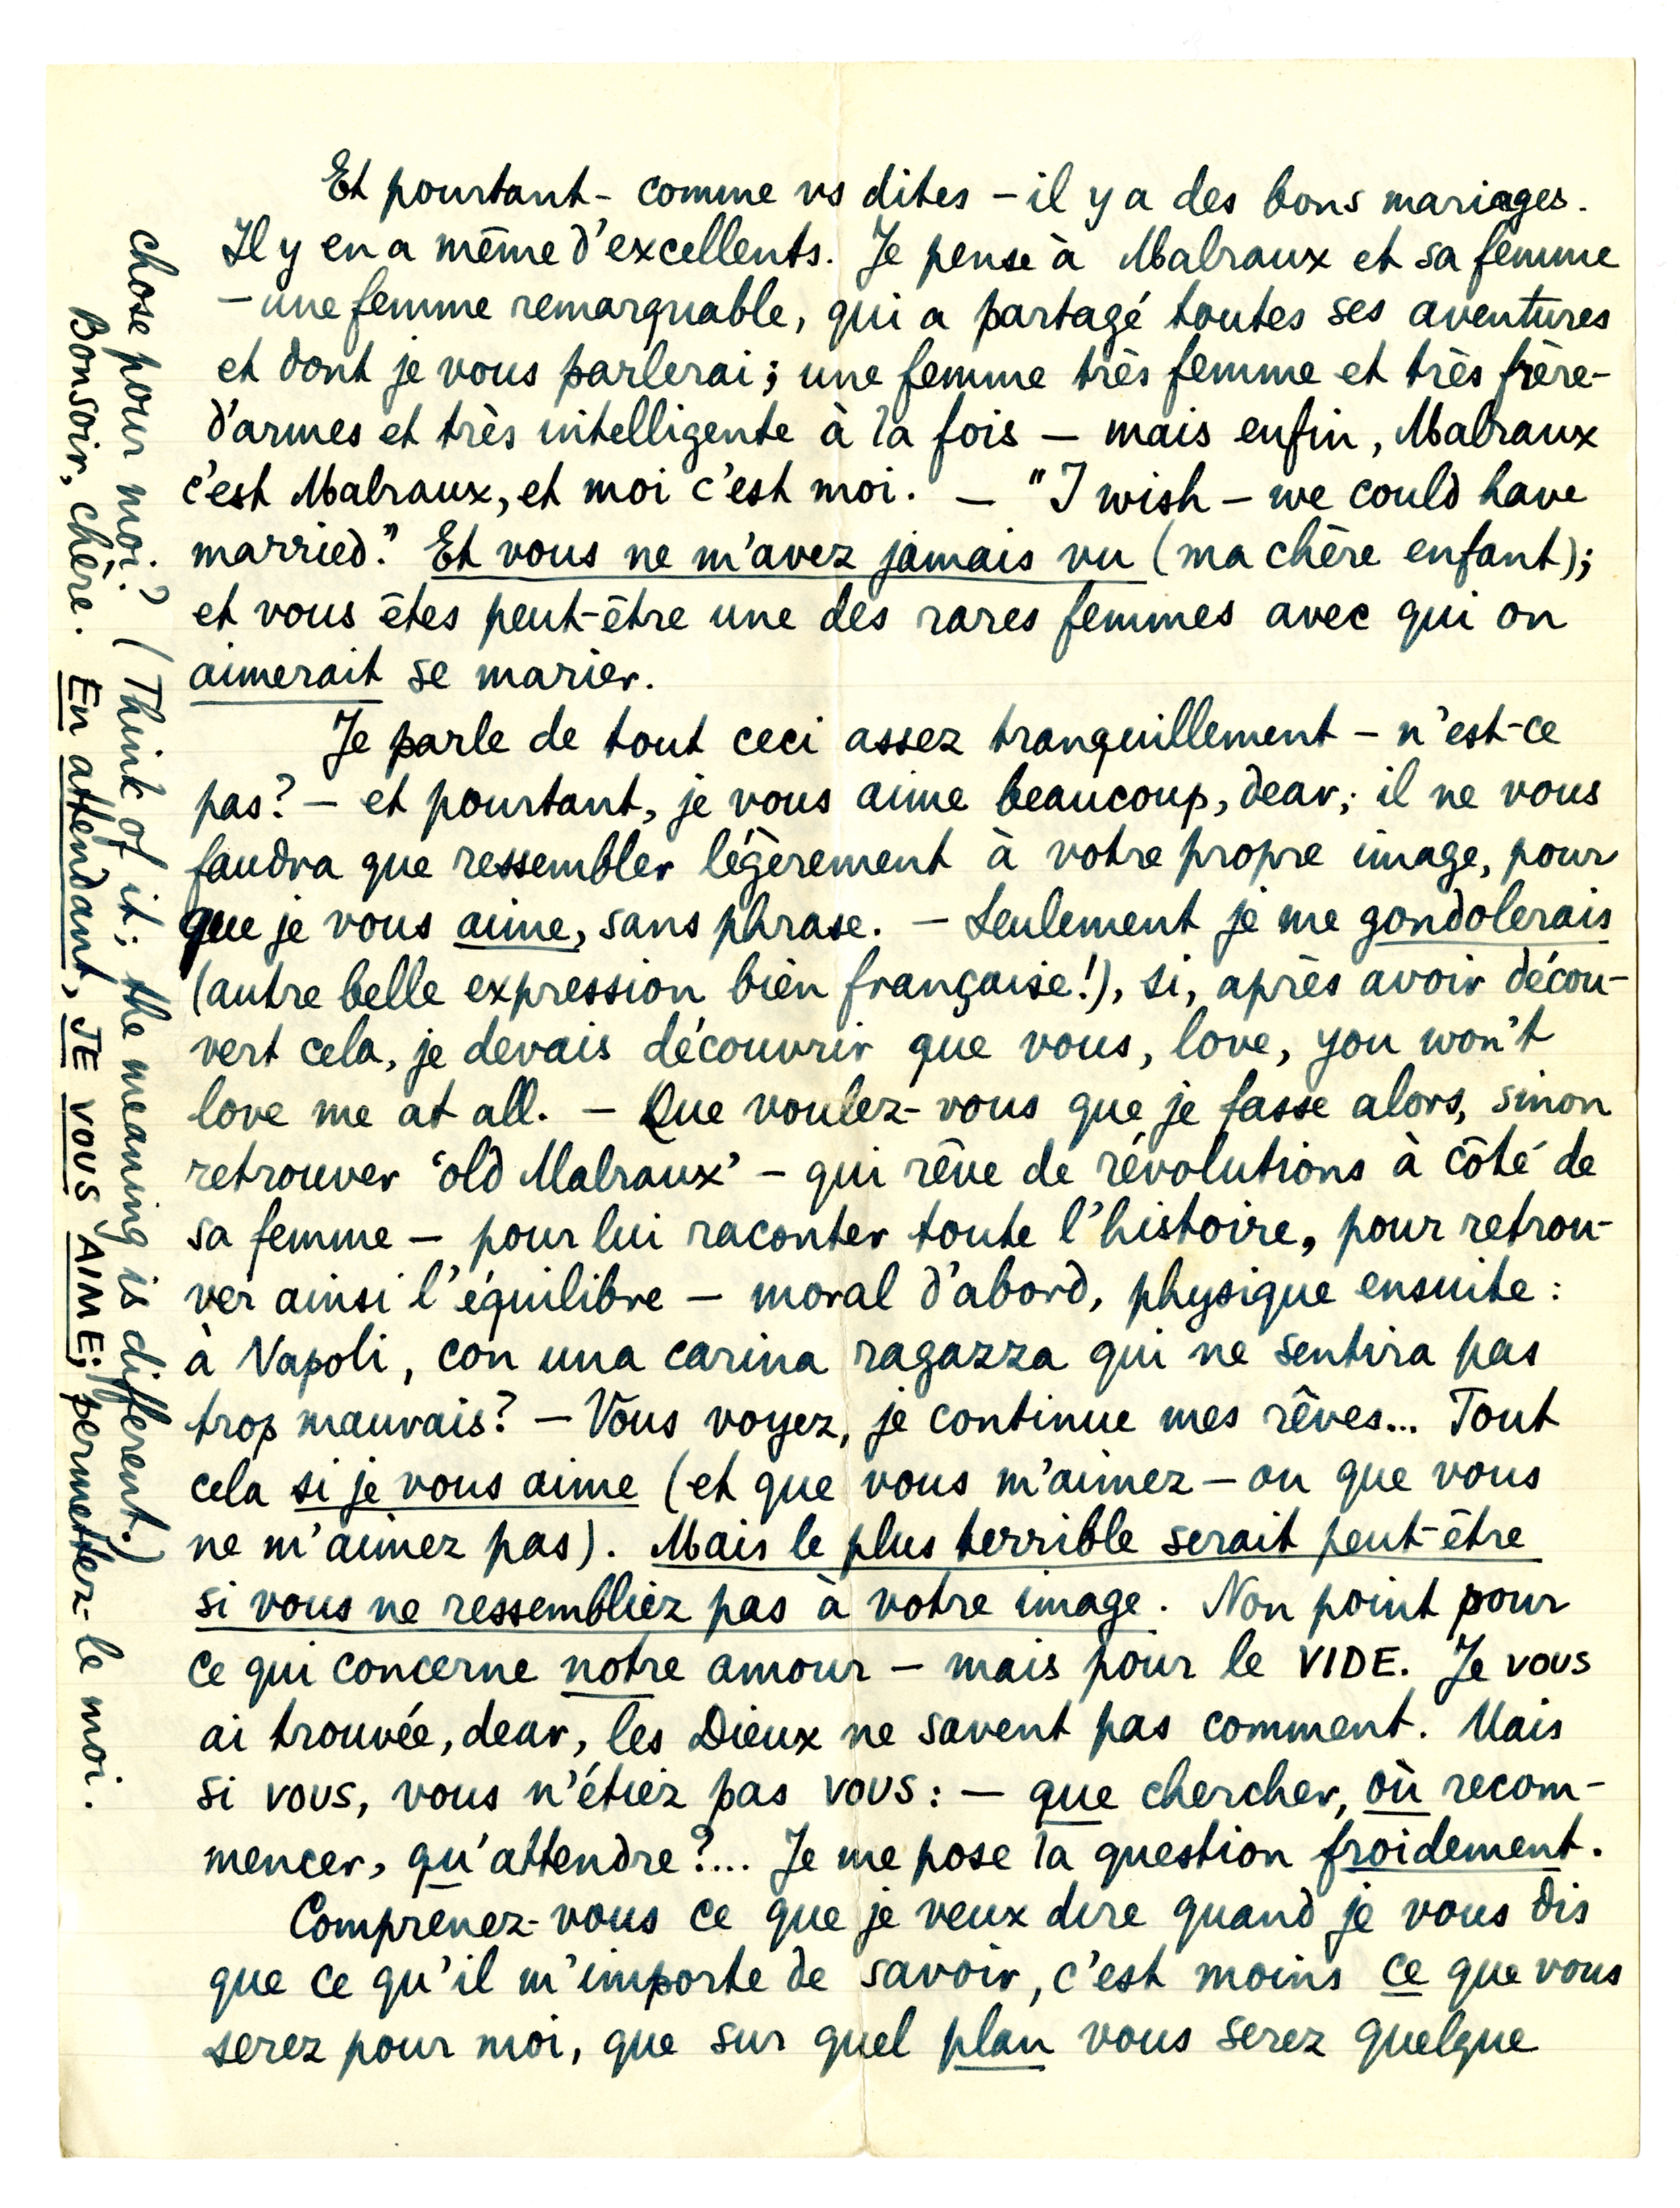 Et pourtant - comme vs dites - il y a des bons mariages.
Il y en a même d'excellents. Je pense à Malraux et sa femme
- une femme remarquable, qui a partagé toutes ses aventures
et dont je vous parlerai; une femme très femme et très frère-
d'armes et très intelligente à la fois — mais enfin, Malraux
c'est Malraux, et moi c'est moi. — "I wish - we could have
married." Et vous ne m'avez jamais vu (ma chère enfant);
et vous êtes peut-être une des rares femmes avec qui on
aimerait se marier.
Je parle de tout ceci assez tranquillement - n'est-ce
pas? - et pourtant, je vous aime beaucoup, dear; il ne vous
faudra que ressembler légèrement à votre propre image, pour
que je vous aime, sans phrase. - Seulement je me gondolerais
(autre belle expression bien française!), si, après avoir décou-
vert cela, je devais découvrir que vous, love, you won't
love me at all. - Que voulez-vous que je fasse alors, sinon
retrouver 'old Malraux' - qui rêve de révolutions à côté de
sa femme - pour lui raconter toute l'histoire, pour retrou-
ver ainsi l'équilibre — moral d'abord, physique ensuite :
à Napoli, con una carina ragazza qui ne sentira pas
trop mauvais? - Vous voyez, je continue mes rêves... Tout
cela si je vous aime (et que vous m'aimez - ou que vous
ne m'aimez pas). Mais le plus terrible serait peut-être
si vous ne ressembliez pas à votre image. Non point pour
ce qui concerne notre amour - mais pour le VIDE. Je vous
ai trouvée, dear, les Dieux ne savent pas comment. Mais
si vous, vous n'étiez pas vous : — que chercher, où recom-
mencer, qu'attendre?... Je me pose la question froidement.
Comprenez-vous ce que je veux dire quand je vous dis
que ce qu'il m'importe de savoir, c'est moins ce que vous
serez pour moi, que sur quel plan vous serez quelque
chose pour moi? (Think of it; the meaning is different.)
Bonsoir, chère. En attendant, JE VOUS AIME; permettez-le moi.